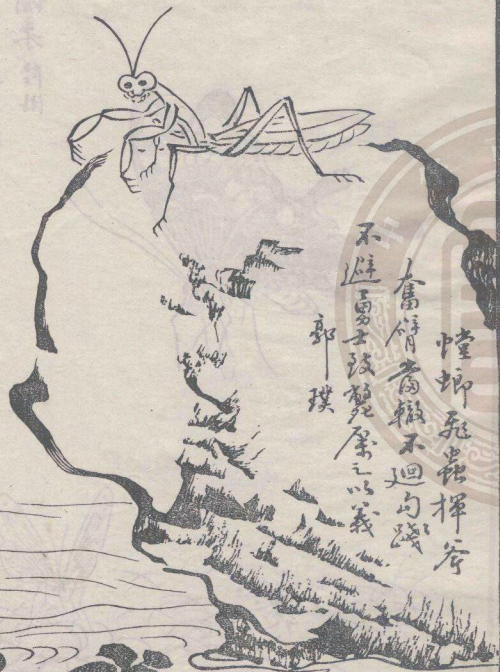 螳螂飛蟲揮斧
奮臂當轍不迴句踐
不避勇士致斃厲之以義
郭璞